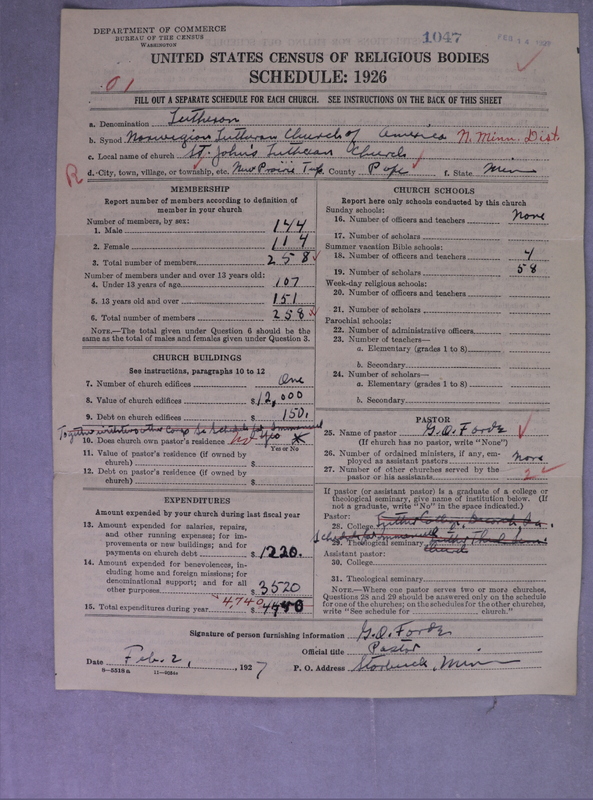 DEPARTMENT OF COMMERCE
BUREAU OF THE CENSUS
WASHINGTON
1047
UNITED STATES CENSUS OF RELIGIOUS BODIES
SCHEDULE: 1926
01
FILL OUT A SEPARATE SCHEDULE FOR EACH CHURCH. SEE INSTRUCTIONS ON THE BACK OF THIS SHEET
a. Denomination Lutheran
b. Synod Norwegian Lutheran Church of America N. Minn. Dist.
c. Local name of church St. John's Lutheran Church
R d. City, town, village, or township, etc. New Prairie Twp. County Pope f. State Minn
MEMBERSHIP
Report number of members according to definition of member in your church
Number of members, by sex:
1. Male 144
2. Female 114
3. Total number of members 258
Number of members under and over 13 years old:
4. Under 13 years of age 107
5. 13 years old and over 151
6. Total number of members 258
NOTE.—The total given under Question 6 should be
same as the total of males and females given under Question 3.
CHURCH BUILDINGS
See instructions, paragraphs 10 to 12
7. Number of church edifices One
8. Value of church edifices $12,000
9. Debt on church edifices $150.
10. Does church own pastor's residence No
Yes or No
11. Value of pastor's residence (if owned by
church) $
12. Debt on pastor's residence (if owned by
church) $
EXPENDITURES
Amount expended by your church during last fiscal year
13. Amount expended for salaries, repairs,
and other running expense; for im-
provements or new buildings; and for
payments on church debt $1220.
14. Amount expended for benevolences, in-
cluding home and foreign missions; for
denominational support; and for all
other purposes $3520
15. Total expenditures during year 4,740
CHURCH SCHOOLS
Report here only schools conducted by this church
Sunday schools:
16. Number of officers and teachers None
17. Number of scholars
Summer vacation Bible schools:
18. Number of officers and teachers 4
19. Number of scholars 58
Week-day religious schools:
20. Number of officers and teachers
21. Number of scholars
Parochial schools:
22. Number of administrative officers
23. Number of teachers—
a. Elementary (grades 1 to 8)
b. Secondary
24. Number of scholars—
a. Elementary (grades 1 to 8)
b. Secondary
PASTOR
25. Name of pastor G.O. Forde
(If church has no pastor, write "None")
26. Number of ordained ministers, if any, em-
ployed as assistant pastors None
27. Number of other churches served by the
pastor or his assistants 2
If pastor (or assistant pastor) is a graduate of a college or
theological seminary, give name of institution below. (If
not a graduate, write "No" in the space indicated.)
Pastor:
28. College
29. Theological seminary
Assistant pastor:
30. College
31. Theological seminary
NOTE.—Where one pastor serves two or more churches,
Questions 28 and 29 should be answered only on the schedule
for one of the churches; on the schedules for the other churches,
write "See schedule for church."
Signature of person furnishing information G.O. Forde
Official title Pastor
Date Feb. 2, , 1927 P. O. Address Starbuck, Minn
8—5518a 11—9084a